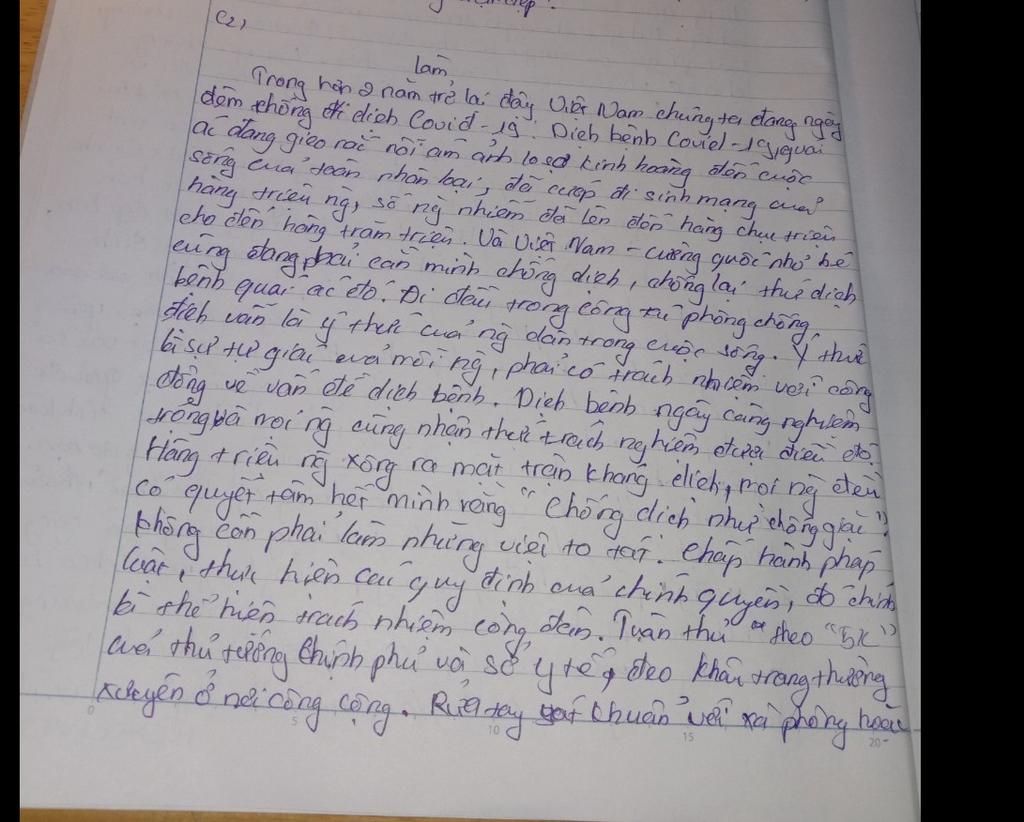 C2,
làm
Trong hơn 2 năm trở lại đây Việt Nam chúng ta đang ngày
đêm chống đi dịch Covid-19. Dịch bệnh Covid-19, quái
ác đang gieo rắc nỗi ám ảnh lo sợ kinh hoàng đến cuộc
sống của toàn nhân loại, đã cướp đi sinh mạng của
hàng triệu ng, số ng nhiễm đã lên đến hàng chục triệu
cho đến hàng trăm triệu. Và Việt Nam - cường quốc nhỏ bé
cũng đang phải căn mình chống dịch, chống lại thứ dịch
bệnh quái ác đó. Đi đầu trong công tác phòng chống
dịch vẫn là ý thức của ng dân trong cuộc sống. Ý thức
là sự tự giác của mỗi ng, phải có trách nhiệm với cộng
đồng về vấn đề dịch bệnh. Dịch bệnh ngày càng nghiêm
trọng và mọi ng cũng nhận thức trách nghiệm được điều đó.
Hàng triệu ng xông ra mặt trận kháng dịch, mọi ng đều
có quyết tâm hết mình rằng "Chống dịch như chống giặc".
Không cần phải làm những việc to tát. Chấp hành pháp
luật, thực hiện các quy định của chính quyền, đó chính
là thể hiện trách nhiệm cộng đồng. Tuân thủ theo "5K"
của thủ tướng Chính phủ và sở y tế, đeo khẩu trang thường
xuyên ở nơi công cộng. Rửa tay chuẩn với xà phòng hoặc
0 5 10 15 20